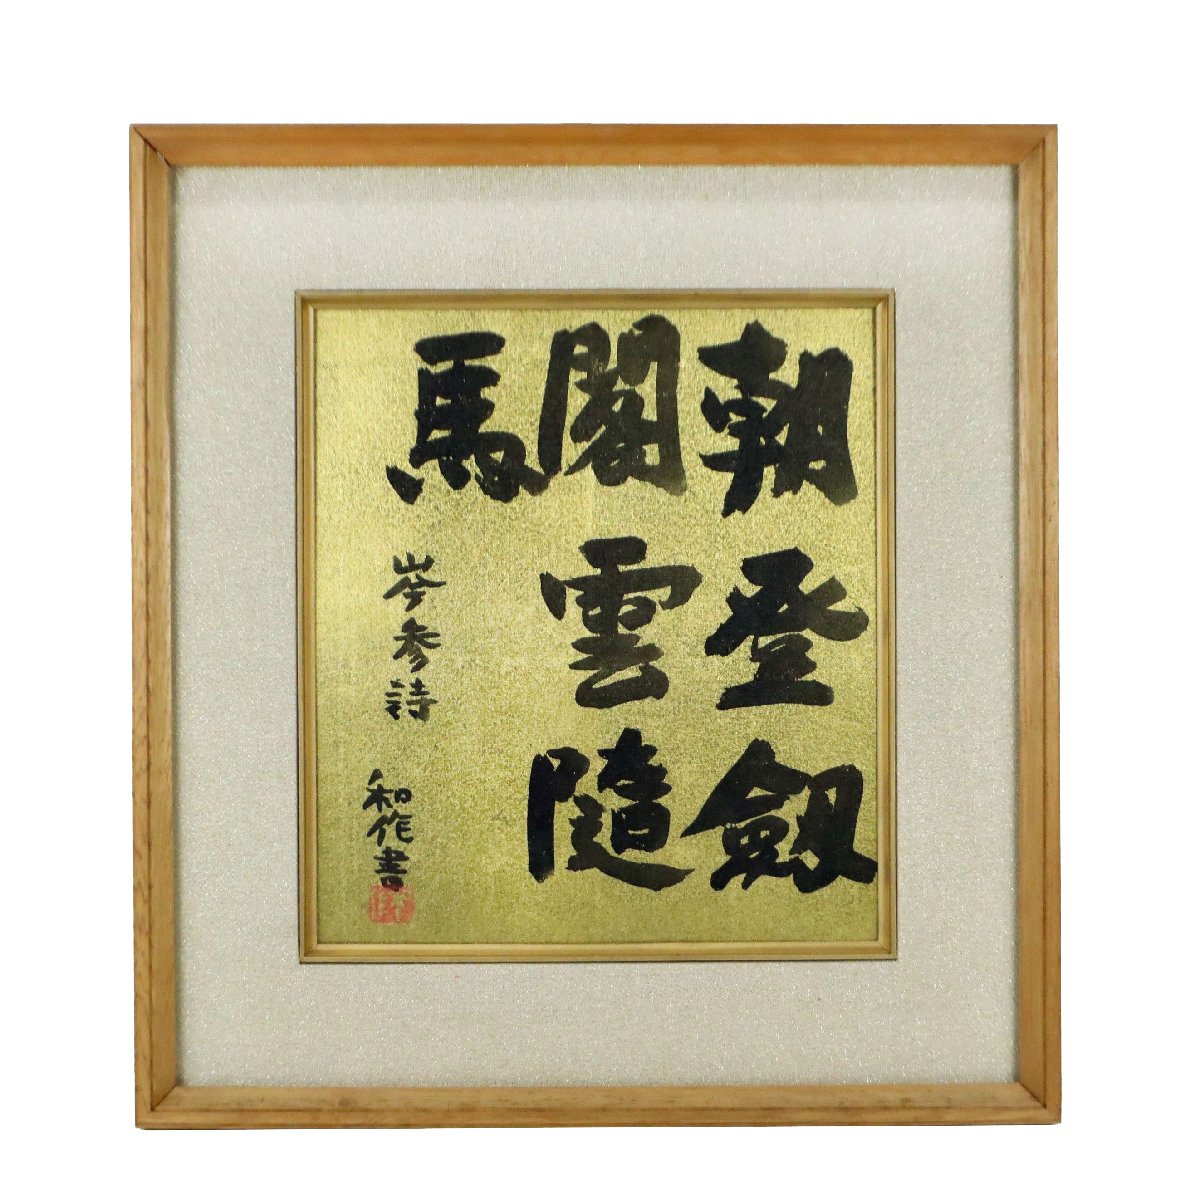 朝登劔
閣雲隨
馬
岑参詩
和作書